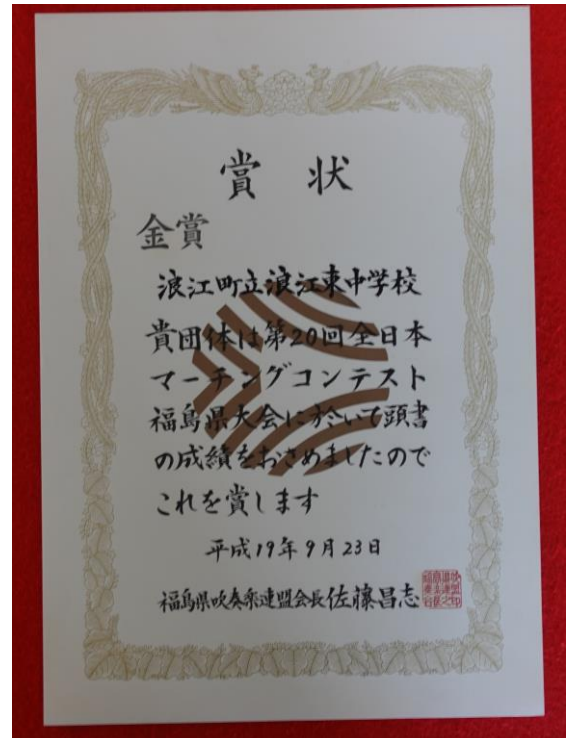 賞状
金賞
浪江町立浪江東中学校
貴団体は第20回全日本
マーチングコンテスト
福島県大会に於いて頭書
の成績をおさめましたので
これを賞します
平成19年9月23日
福島県吹奏楽連盟会長佐藤昌志